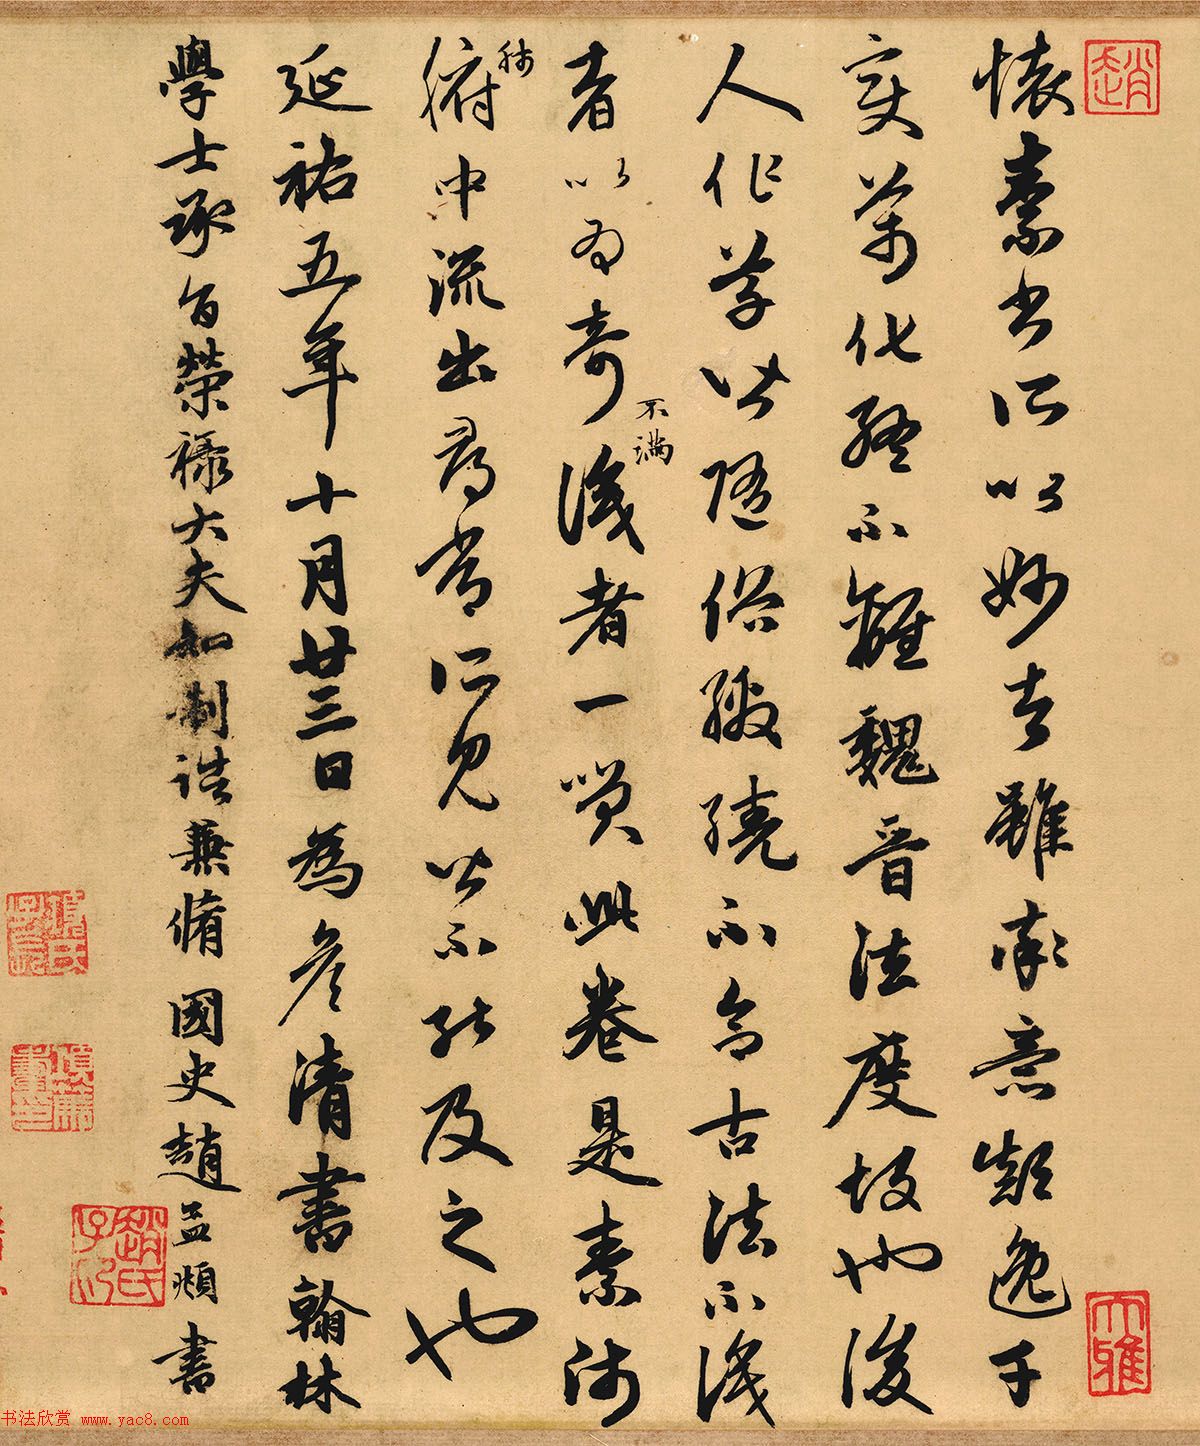 趙
懷素書所以妙者雖率意顛逸千
變萬化終不離魏晉法度故也後
人作草皆隨俗繳繞不合古法不識
者以為奇不滿識者一笑此卷是素師
肺腑中流出尋常所見皆不能及之也
延祐五年十月廿三日為彥清書翰林
學士承旨榮祿大夫知制誥兼脩國史趙孟頫書
大雅
趙氏子昂
书法欣赏 www.yac8.com